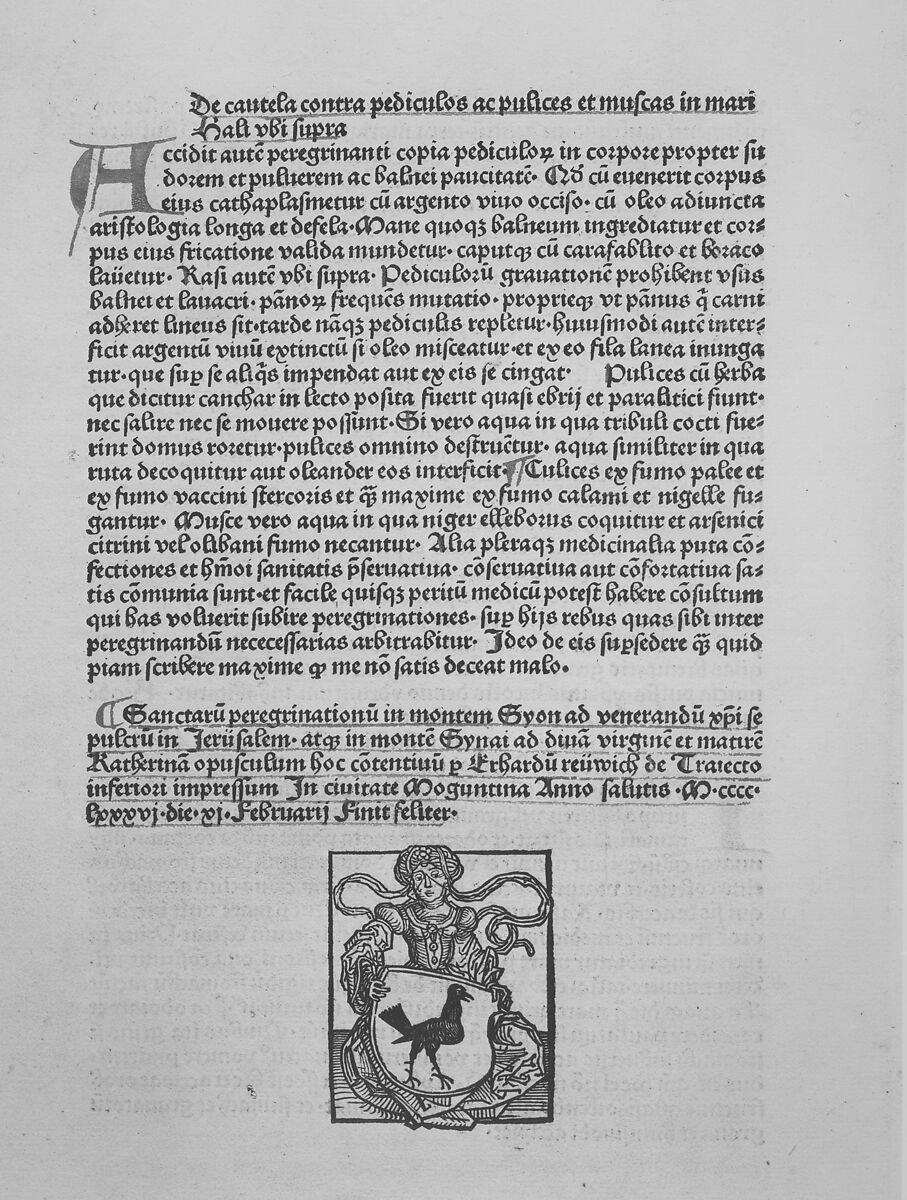 De cautela contra pediculos ac pulices et muscas in mari
Hali vbi supra
Accidit autē peregrinanti copia pediculoꝝ in corpore propter su
dorem et puluerem ac balnei paucitatē· Qd̄ cū euenerit corpus
eius cathaplasmetur cū argento viuo occiso· cū oleo adiuncta
aristologia longa et defela·Mane quoqꝫ balneum ingrediatur et cor⸗
pus eius fricatione valida mundetur· caputqꝫ cū carafablito et boraco
lauetur· Rasi autē vbi supra· Pediculorū grauationē prohibent vsus
balnei et lauacri· pānoꝝ frequēs mutatio· proprieqꝫ vt pānus q̄ carni
adheret lineus sit·tarde nāqꝫ pediculis repletur·huiusmodi autē inter⸗
ficit argentū viuū extinctū si oleo misceatur·et ex eo fila lanea inunga
tur·que suꝑ se aliq̄s impendat aut ex eis se cingat· Pulices cū herba
que dicitur canchar in lecto posita fuerit quasi ebrij et paralitici fiunt·
nec salire nec se mouere possunt·Si vero aqua in qua tribuli cocti fue⸗
rint domus roretur·pulices omnino destruētur· aqua similiter in qua
ruta decoquitur aut oleander eos interficit·¶Culices ex fumo palee et
ex fumo vaccini stercoris et q̄ꝫ maxime ex fumo calami et nigelle fu⸗
gantur· Musce vero aqua in qua niger elleborus coquitur et arsenici
citrini vel olibani fumo necantur· Alia pleraqꝫ medicinalia puta cō⸗
fectiones et hm̄oi sanitatis p̄seruatiua· cōseruatiua aut cōfortatiua sa⸗
tis cōmunia sunt·et facile quisqꝫ peritū medicū potest habere cōsultum
qui has voluerit subire peregrinationes· suꝑ hijs rebus quas sibi inter
peregrinandū nececessarias arbitrabitur· Ideo de eis suꝑsedere q̄ꝫ quid
piam scribere maxime ꝙ me nō satis deceat malo·
¶ Sanctarū peregrinationū in montem Syon ad venerandū xp̄i se
pulcrū in Jerusalem· atqꝫ in montē Synai ad diuā virginē et matirē
Katherinā opusculum hoc cōtentiuū ꝑ Erhardū reüwich de Traiecto
inferiori impressum In ciuitate Moguntina Anno salutis ·M·cccc·
lxxxvj·die·xj·Februarij Finit feliter·